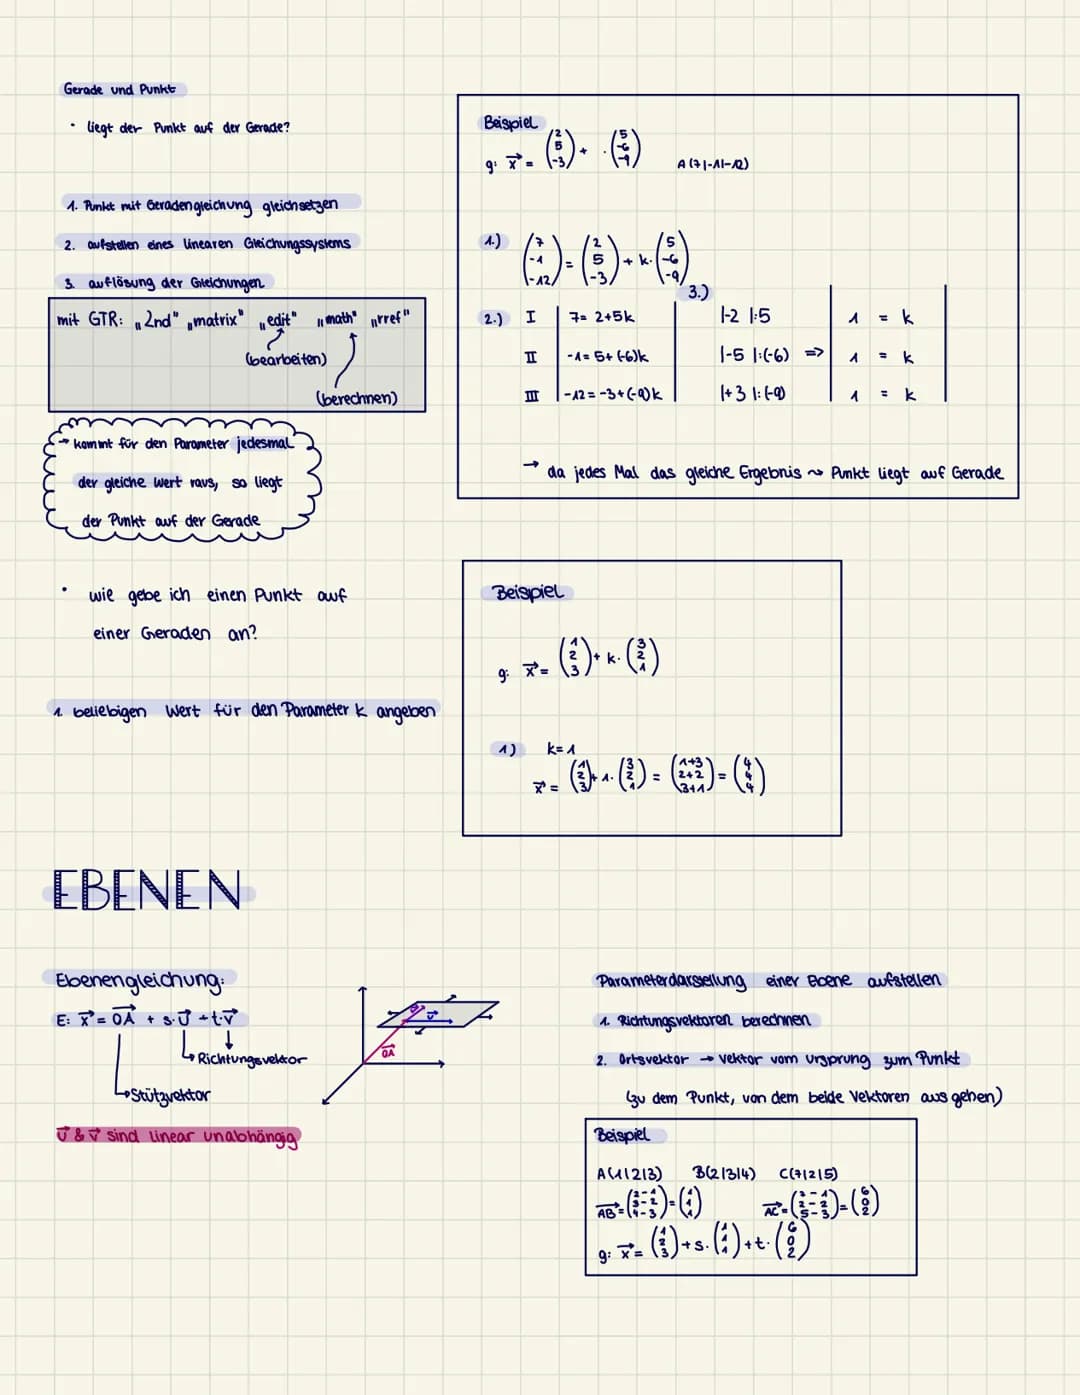 Gerade und Punkt
• liegt der Punkt auf der Gerade?
1. Punkt mit Geradengleichung gleichsetzen
2. aufstellen eines linearen Gleichungssystems
3. auflösung der Gleichungen
mit GTR: „2nd" „matrix" „edit" „math" „rref"
(bearbeiten)
(berechnen)
→ kommt für den Parameter jedesmal
der gleiche Wert raus, so liegt
der Punkt auf der Gerade
Beispiel
g: x⃗ = (2 5 -3) + · (5 -6 -9) A(7|-1|-12)
1.) (7 -1 -12) = (2 5 -3) + k· (5 -6 -9)
3.)
2.) I | 7 = 2+5k | |-2 |:5 | 1 = k |
II | -1 = 5+(-6)k | |-5 |:(-6) => | 1 = k |
III | -12 = -3+(-9)k | |+3 |:(-9) | 1 = k |
→ da jedes Mal das gleiche Ergebnis ⤳ Punkt liegt auf Gerade
• wie gebe ich einen Punkt auf
einer Geraden an?
1. beliebigen Wert für den Parameter k angeben
Beispiel
g: x⃗ = (1 2 3) + k· (3 2 1)
1) k=1
x⃗ = (1 2 3) + 1· (3 2 1) = (1+3 2+2 3+1) = (4 4 4)
EBENEN
Ebenengleichung:
E: x⃗ = OA⃗ + s·u⃗ + t·v⃗
Richtungsvektor
Stützvektor
u⃗ & v⃗ sind linear unabhängig
OA⃗
v⃗
Parameterdarstellung einer Ebene aufstellen
1. Richtungsvektoren berechnen
2. Ortsvektor → Vektor vom Ursprung zum Punkt
(zu dem Punkt, von dem beide Vektoren aus gehen)
Beispiel
A(1|2|3) B(2|3|4) C(7|2|5)
AB⃗ = (2-1 3-2 4-3) = (1 1 1) AC⃗ = (7-1 2-2 5-3) = (6 0 2)
g: x⃗ = (1 2 3) + s· (1 1 1) + t· (6 0 2)